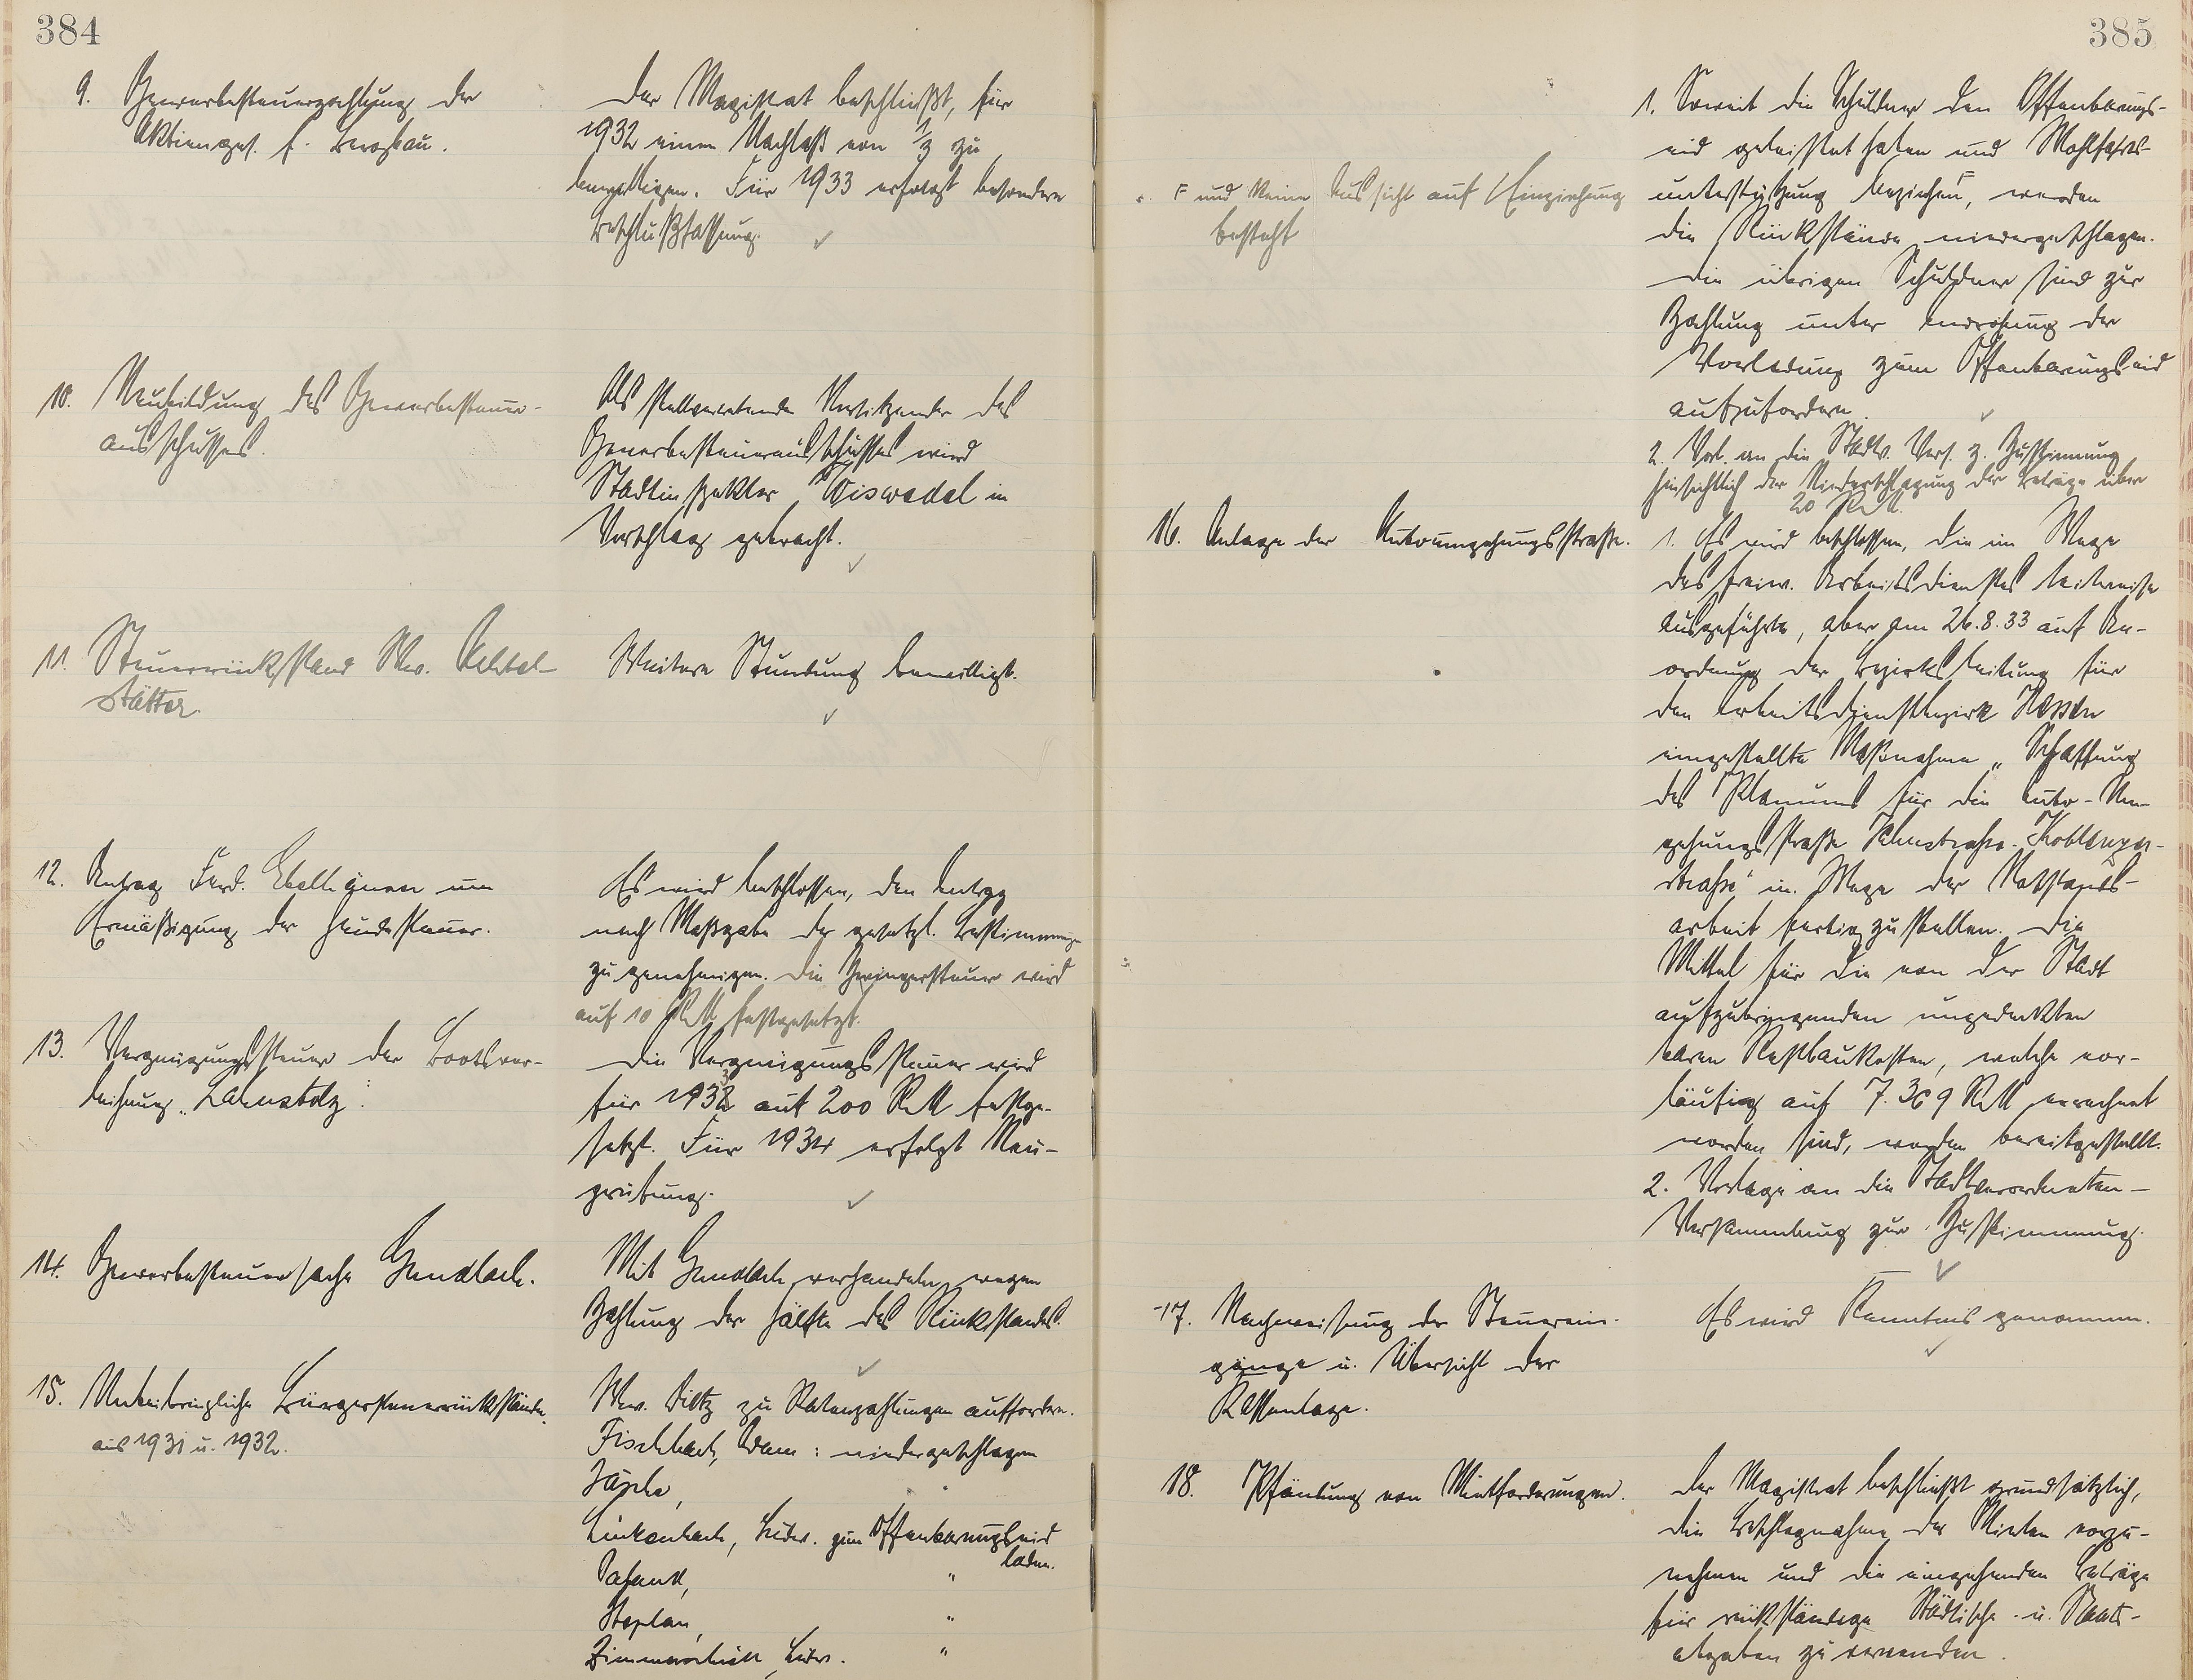 384
9. Gewerbesteuerzahlung der
Aktienges. f. Bergbau.
Der Magistrat beschließt, für
1932 einen Nachlaß von 1/3 zu
bewilligen. Für 1933 erfolgt besondere
Beschlußfassung.
10. Neubildung des Gewerbesteuer-
ausschusses.
Als stellvertretender Vorsitzender des
Gewerbesteuerausschusses wird
Stadtinspektor Wiswedel in
Vorschlag gebracht.
11. Steuerrückstand Ww. Achtel-
stätter
Weitere Stundung bewilligt.
12. Antrag Ferd. um
Ermäßigung der Hundesteuer.
Es wird beschlossen, den Antrag
nach Maßgabe der gesetzl. Bestimmungen
zu genehmigen. Die Zwingersteuer wird
auf 10 RM festgesetzt.
13. Vergnügungssteuer der Bootsver-
leihung „Lahnstolz".
Die Vergnügungssteuer wird
für 1933 auf 200 RM festge-
setzt. Für 1934 erfolgt Neu-
prüfung.
14. Gewerbesteuersache Gundlach.
Mit Gundlach verhandeln wegen
Zahlung der Hälfte des Rückstandes.
15. Unbeibringliche Bürgersteuerrückstände
aus 1931 u. 1932.
Ww. Dietz zu Ratenzahlungen auffordern.
Fischbach, Adam: niedergeschlagen
Jäpche, "
Linkenbach, Ludw. zum Offenbarungseid
laden.
"
Stephan, "
Ludw. "
385
1. Soweit die Schuldner den Offenbarungs-
eid geleistet haben und Wohlfahrts-
unterstützung beziehen F, werden
die Rückstände niedergeschlagen.
F und keine Aussicht auf Einziehung
besteht
Die übrigen Schuldner sind zur
Zahlung unter Androhung der
Vorladung zum Offenbarungseid
aufzufordern.
2. Vorl. an die Stadtv. Vers. z. Zustimmung
hinsichtlich der Niederschlagung der Beträge über
20 RM.
16. Anlage der Autoumgehungsstraße.
1. Es wird beschlossen, die im Wege
des freiw. Arbeitsdienstes teilweise
ausgeführte, aber am 26.8.33 auf An-
ordnung der Bezirksleitung für
den Arbeitsdienstbezirk Hessen
eingestellte Maßnahme „Schaffung
des Planums für die Auto-Um-
gehungsstraße Lahnstraße-Koblenzer-
straße" im Wege der Notstands-
arbeit fertig zu stellen. Die
Mittel für die von der Stadt
aufzubringenden ungedeckten
baren Restbaukosten, welche vor-
läufig auf 7.369 RM errechnet
worden sind, werden bereitgestellt.
2. Vorlage an die Stadtverordneten-
Versammlung zur Zustimmung.
17. Nachweisung der Steuerein-
gänge u. Übersicht der
Kassenlage.
Es wird Kenntnis genommen.
18. Pfändung von Mietforderungen.
Der Magistrat beschließt grundsätzlich,
die Beschlagnahme der Mieten vorzu-
nehmen und die eingehenden Beträge
für rückständige Städtische- u. Staats-
abgaben zu verwenden.